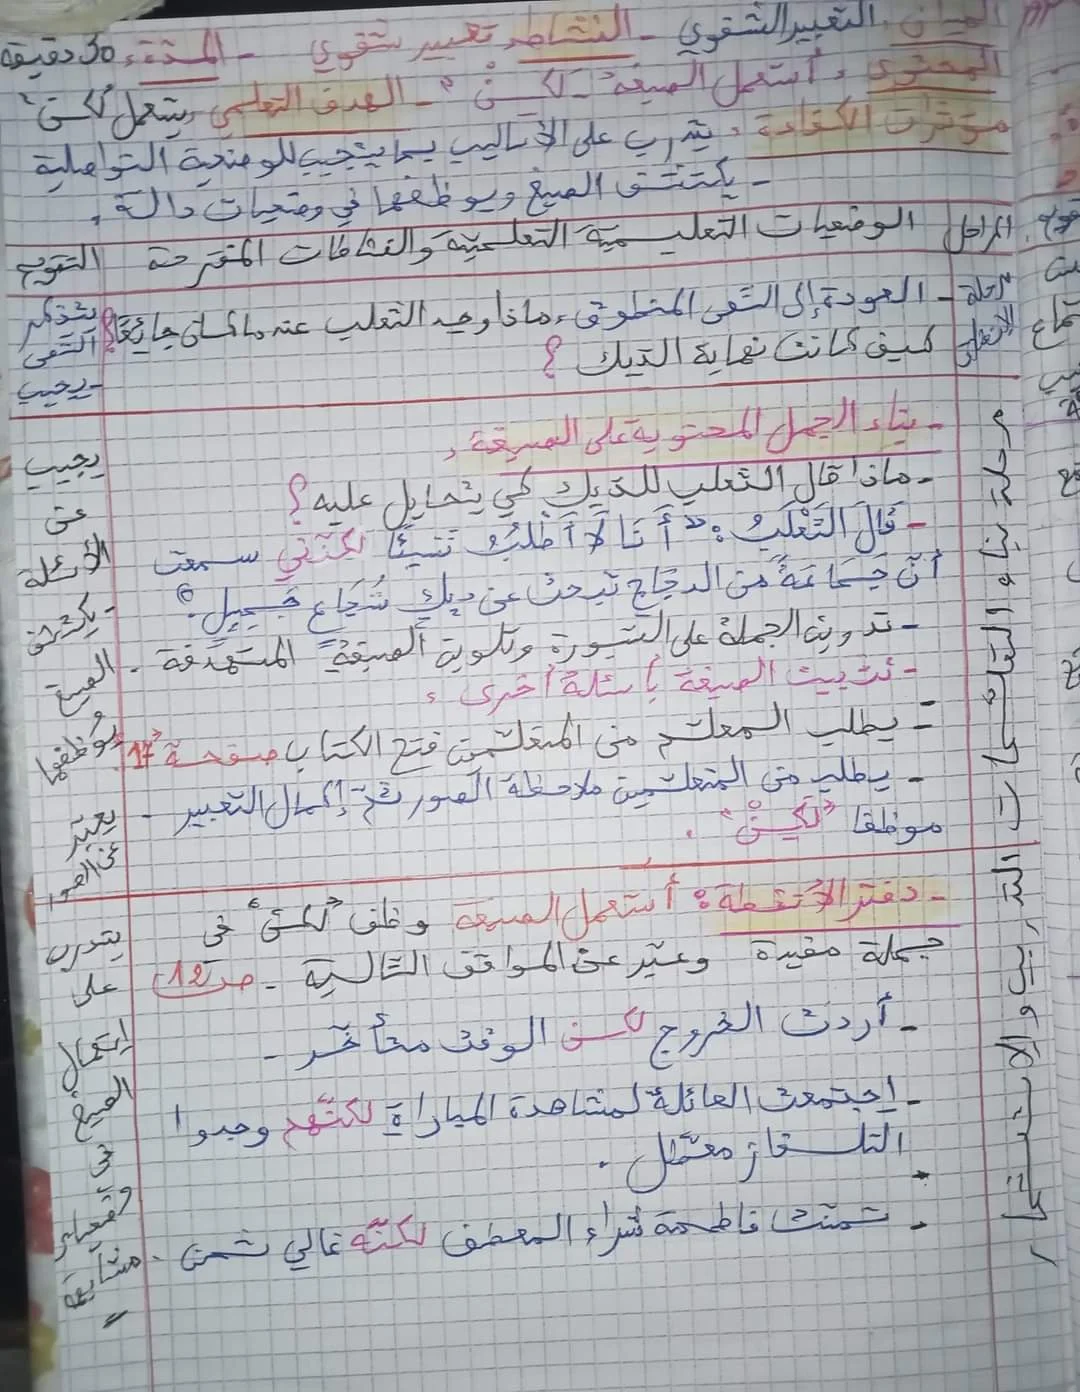 الميدان: التعبير الشفوي - النشاط: تعبير شفوي - المدة: 30 دقيقة
المحتوى: أستعمل الصيغة - لكنْ - الهدف التعلمي: يستعمل "لكنّ"
مؤشرات الكفاءة: يتدرب على الأساليب بما يستجيب للوضعية التواصلية
- يكتشف الصيغ ويوظفها في وضعيات دالة.
المراحل
الوضعيات التعليمية التعلمية والنشاطات المقترحة
التقويم
مرحلة الانطلاق
- العودة إلى النص المنطوق: ماذا وجد الثعلب عندما كان جائعًا؟
كيف كانت نهاية الديك؟
يتذكر
النص
- يجيب
مرحلة بناء التعلمات
- بناء الجمل المحتوية على الصيغة:
- ماذا قال الثعلب للديك كي يتحايل عليه؟
- قَالَ الثَّعْلَبُ: "أَنَا لَا أَطْلُبُ شَيْئًا لكنّني سمعت
أنّ جَمَاعَةً من الدجاج تبحث عن ديكٍ شُجَاعٍ جَمِيلٍ"
- تدوين الجملة على السبورة وتلوين الصيغة المستهدفة.
- تثبيت الصيغة بأسئلة أخرى:
- يطلب المعلم من المتعلمين فتح الكتاب صفحة 17
- يطلب من المتعلمين ملاحظة الصور ثم إكمال التعبير
موظفا "لَكِنْ".
يجيب
عن
الأسئلة
- يكتشف
الصيغ
يُوظفها
- يعبّر
عن الصور
التدريب والاستثمار
- دفتر الأنشطة: أستعمل الصيغة وظف "لكنّ" في
جملة مفيدة وعبّر عن المواقف التالية - ص 12
- أردت الخروج لكن الوقت متأخّر -
- إجتمعت العائلة لمشاهدة المباراة لكنّهم وجدوا
التلفاز معطّل.
- تمنت فاطمة شراء المعطف لكنّه غالي ثمن.
يتدرب
على
إستعمال
الصيغ
في
وضعيات
مشابهة